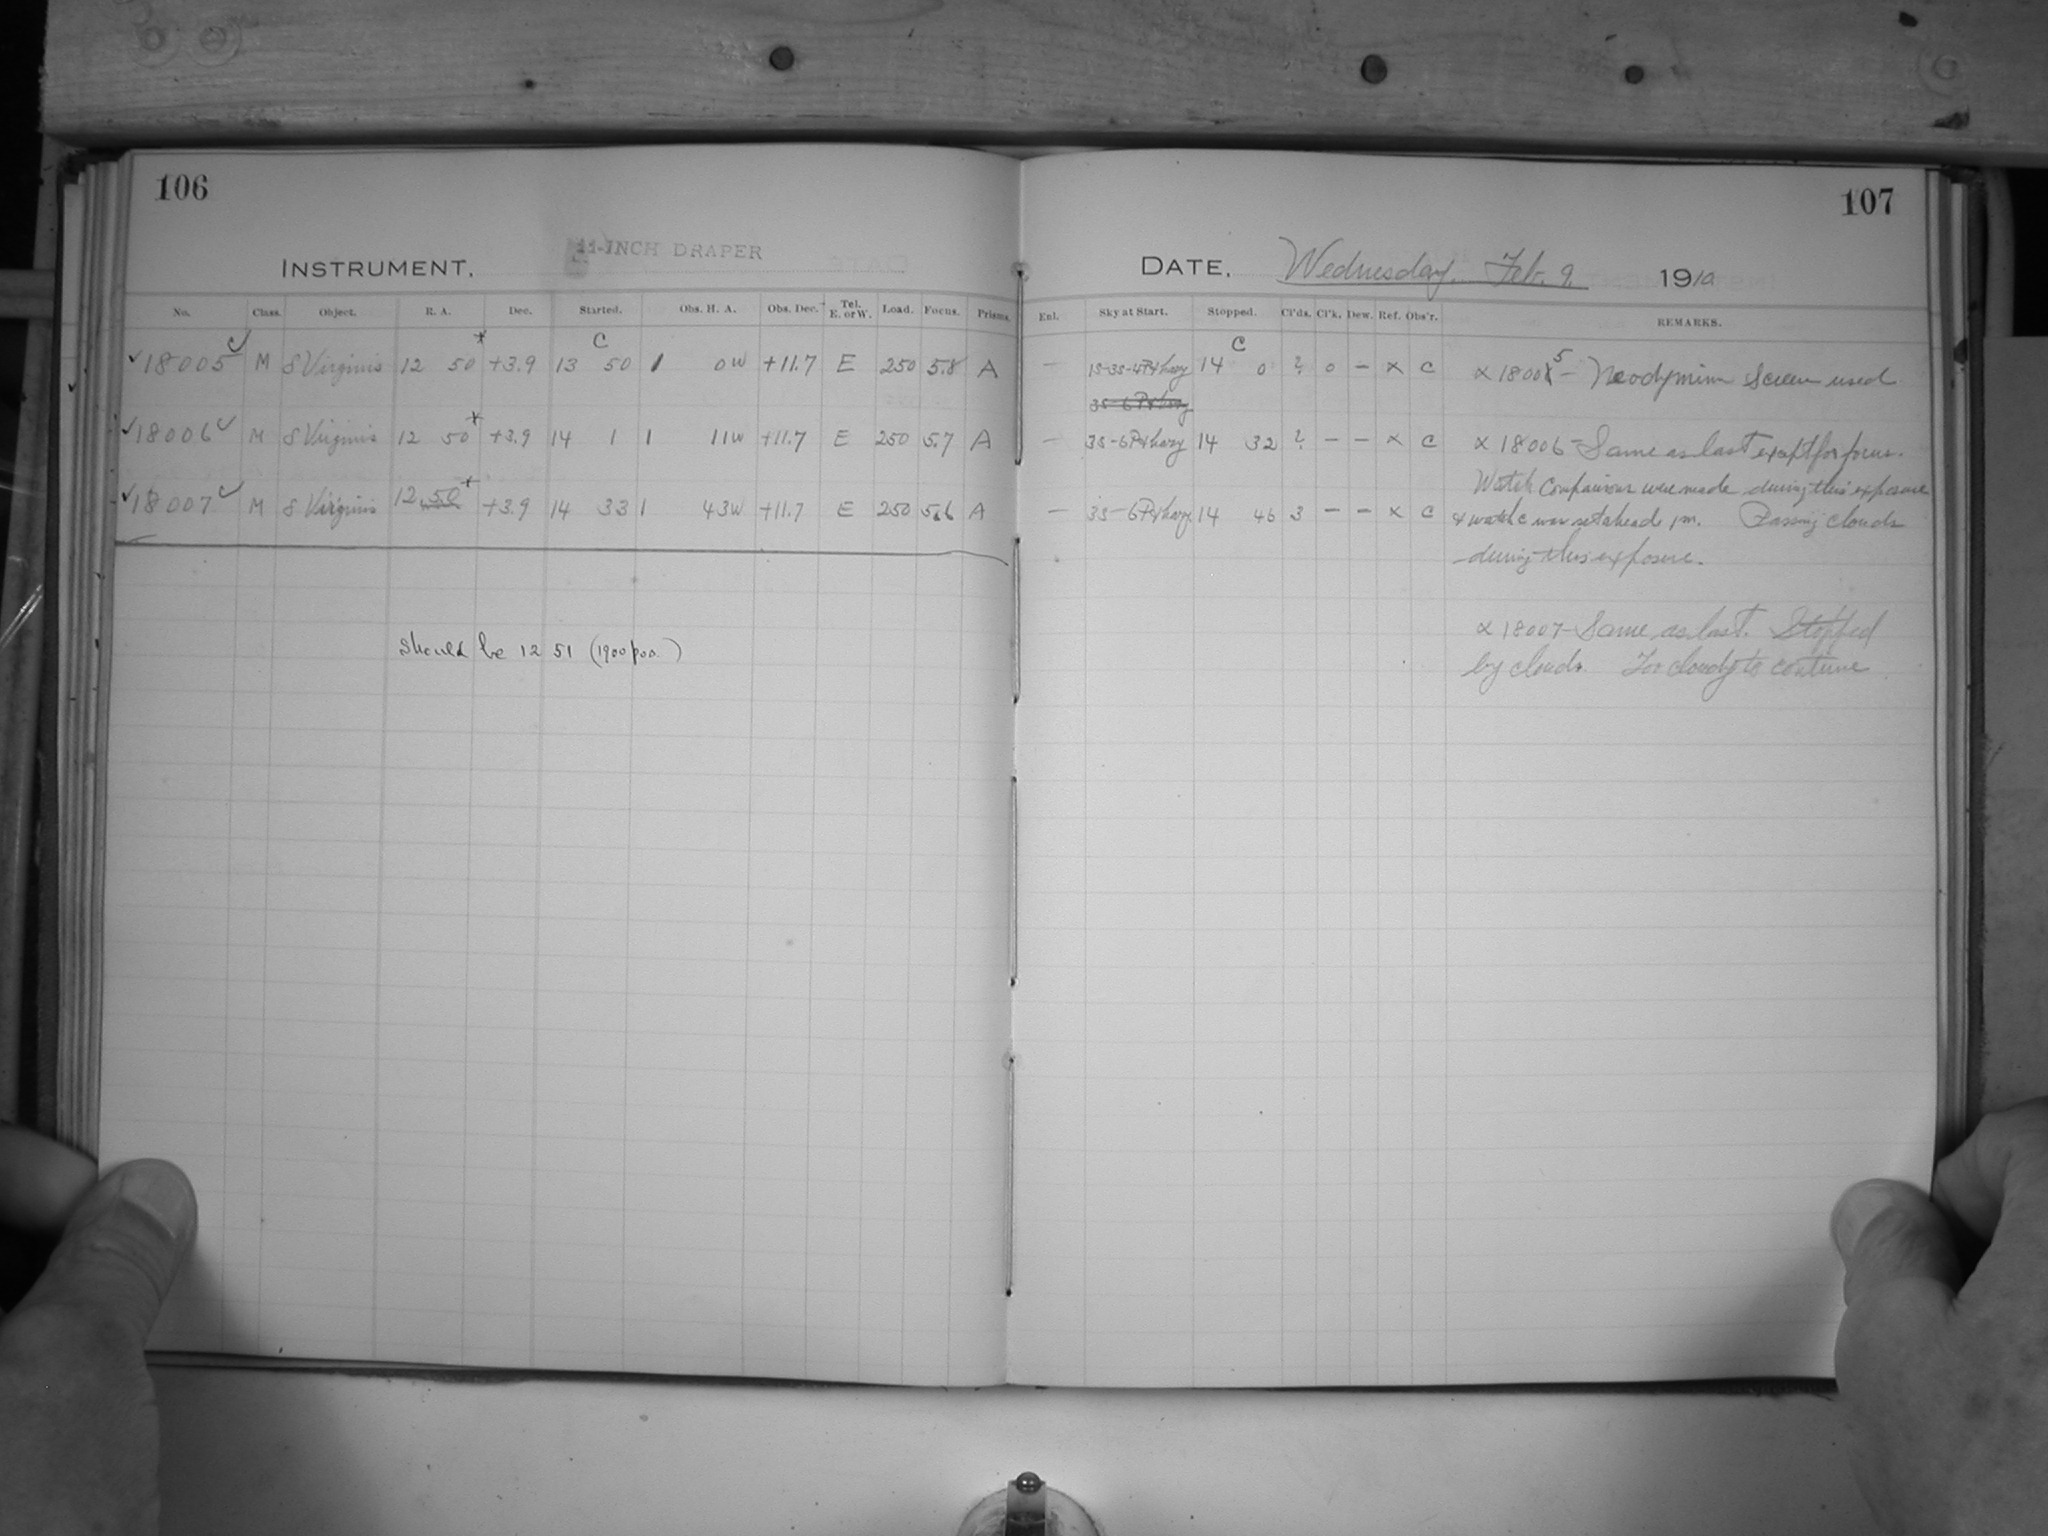 106
INSTRUMENT. 11-INCH DRAPER
No. Class. Object. R. A. Dec. Started. Obs. H. A. Obs. Dec. Tel. E. or W. Load. Focus. Prisms.
C
✓18005✓ M S Virginis 12 50* +3.9 13 50 1 0W +11.7 E 250 5.8 A
✓18006✓ M S Virginis 12 50* +3.9 14 1 1 11W +11.7 E 250 5.7 A
✓18007✓ M S Virginis 12 50* +3.9 14 33 1 43W +11.7 E 250 5.6 A
Should be 12 51 (1900 pos.)
107
DATE. Wednesday, Feb. 9. 1910
Enl. Sky at Start. Stopped. Cl'ds. Cl'k. Dew. Ref. Obs'r. REMARKS.
C
— 1S-3S-4P+hazy 14 0 ? 0 — x C x 18005 — Neodymium Screen used
3S-6P+hazy
— 3S-6P+hazy 14 32 ? — — x C x 18006 - Same as last except for focus.
Watch Comparisons were made during this exposure
— 3S-6P+hazy 14 46 3 — — x C & watch C was set ahead 1m. Passing Clouds
during this exposure.
x 18007 - Same as last. Stopped
by clouds. Too cloudy to continue